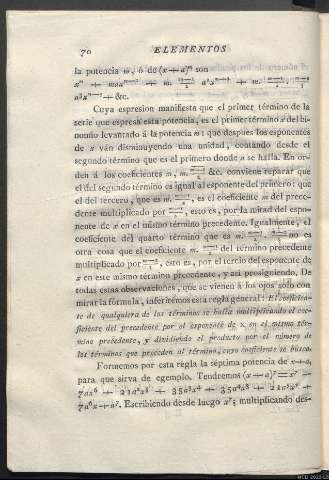 70 ELEMENTOS
la potencia m, ó de (x+a)ᵐ son
a³xᵐ⁻³+&c.
Cuya expresion manifiesta que el primer término de la
serie que espresa esta potencia, es el primer término x del bi-
nomio levantado á la potencia m: que despues los esponentes
de x ván disminuyendo una unidad, contando desde el
segundo término que es el primero donde a se halla. En or-
den á los coeficientes m, m. &c. conviene reparar que
el del segundo término es igual al esponente del primero: que
el del tercero, que es m. , es el coeficiente m del prece-
dente multiplicado por , esto es, por la mitad del espo-
nente de x en el mismo término precedente. Igualmente, el
coeficiente del quarto término que es m. no es
otra cosa que el coeficiente m. del término precedente
multiplicado por , esto es, por el tercio del esponente de
x en este mismo término precedente, y asi prosiguiendo. De
todas estas observaciones, que se vienen á los ojos solo con
mirar la fórmula, inferirémos esta regla general: El coeficien-
te de qualquiera de los términos se halla multiplicando el coe-
ficiente del precedente por el esponente de x, en el mismo tér-
mino precedente, y dividiendo el producto por el número de
los términos que preceden al término, cuyo coeficiente se busca.
Formemos por esta regla la séptima potencia de x+a,
para que sirva de egemplo. Tendremos (x+a)⁷=x⁷+
7ax⁶ + 21a²x⁵ + 35a³x⁴ + 35a⁴x³ + 21a⁵x² +
7a⁶x+a⁷. Escribiendo desde luego x⁷; multiplicando des-